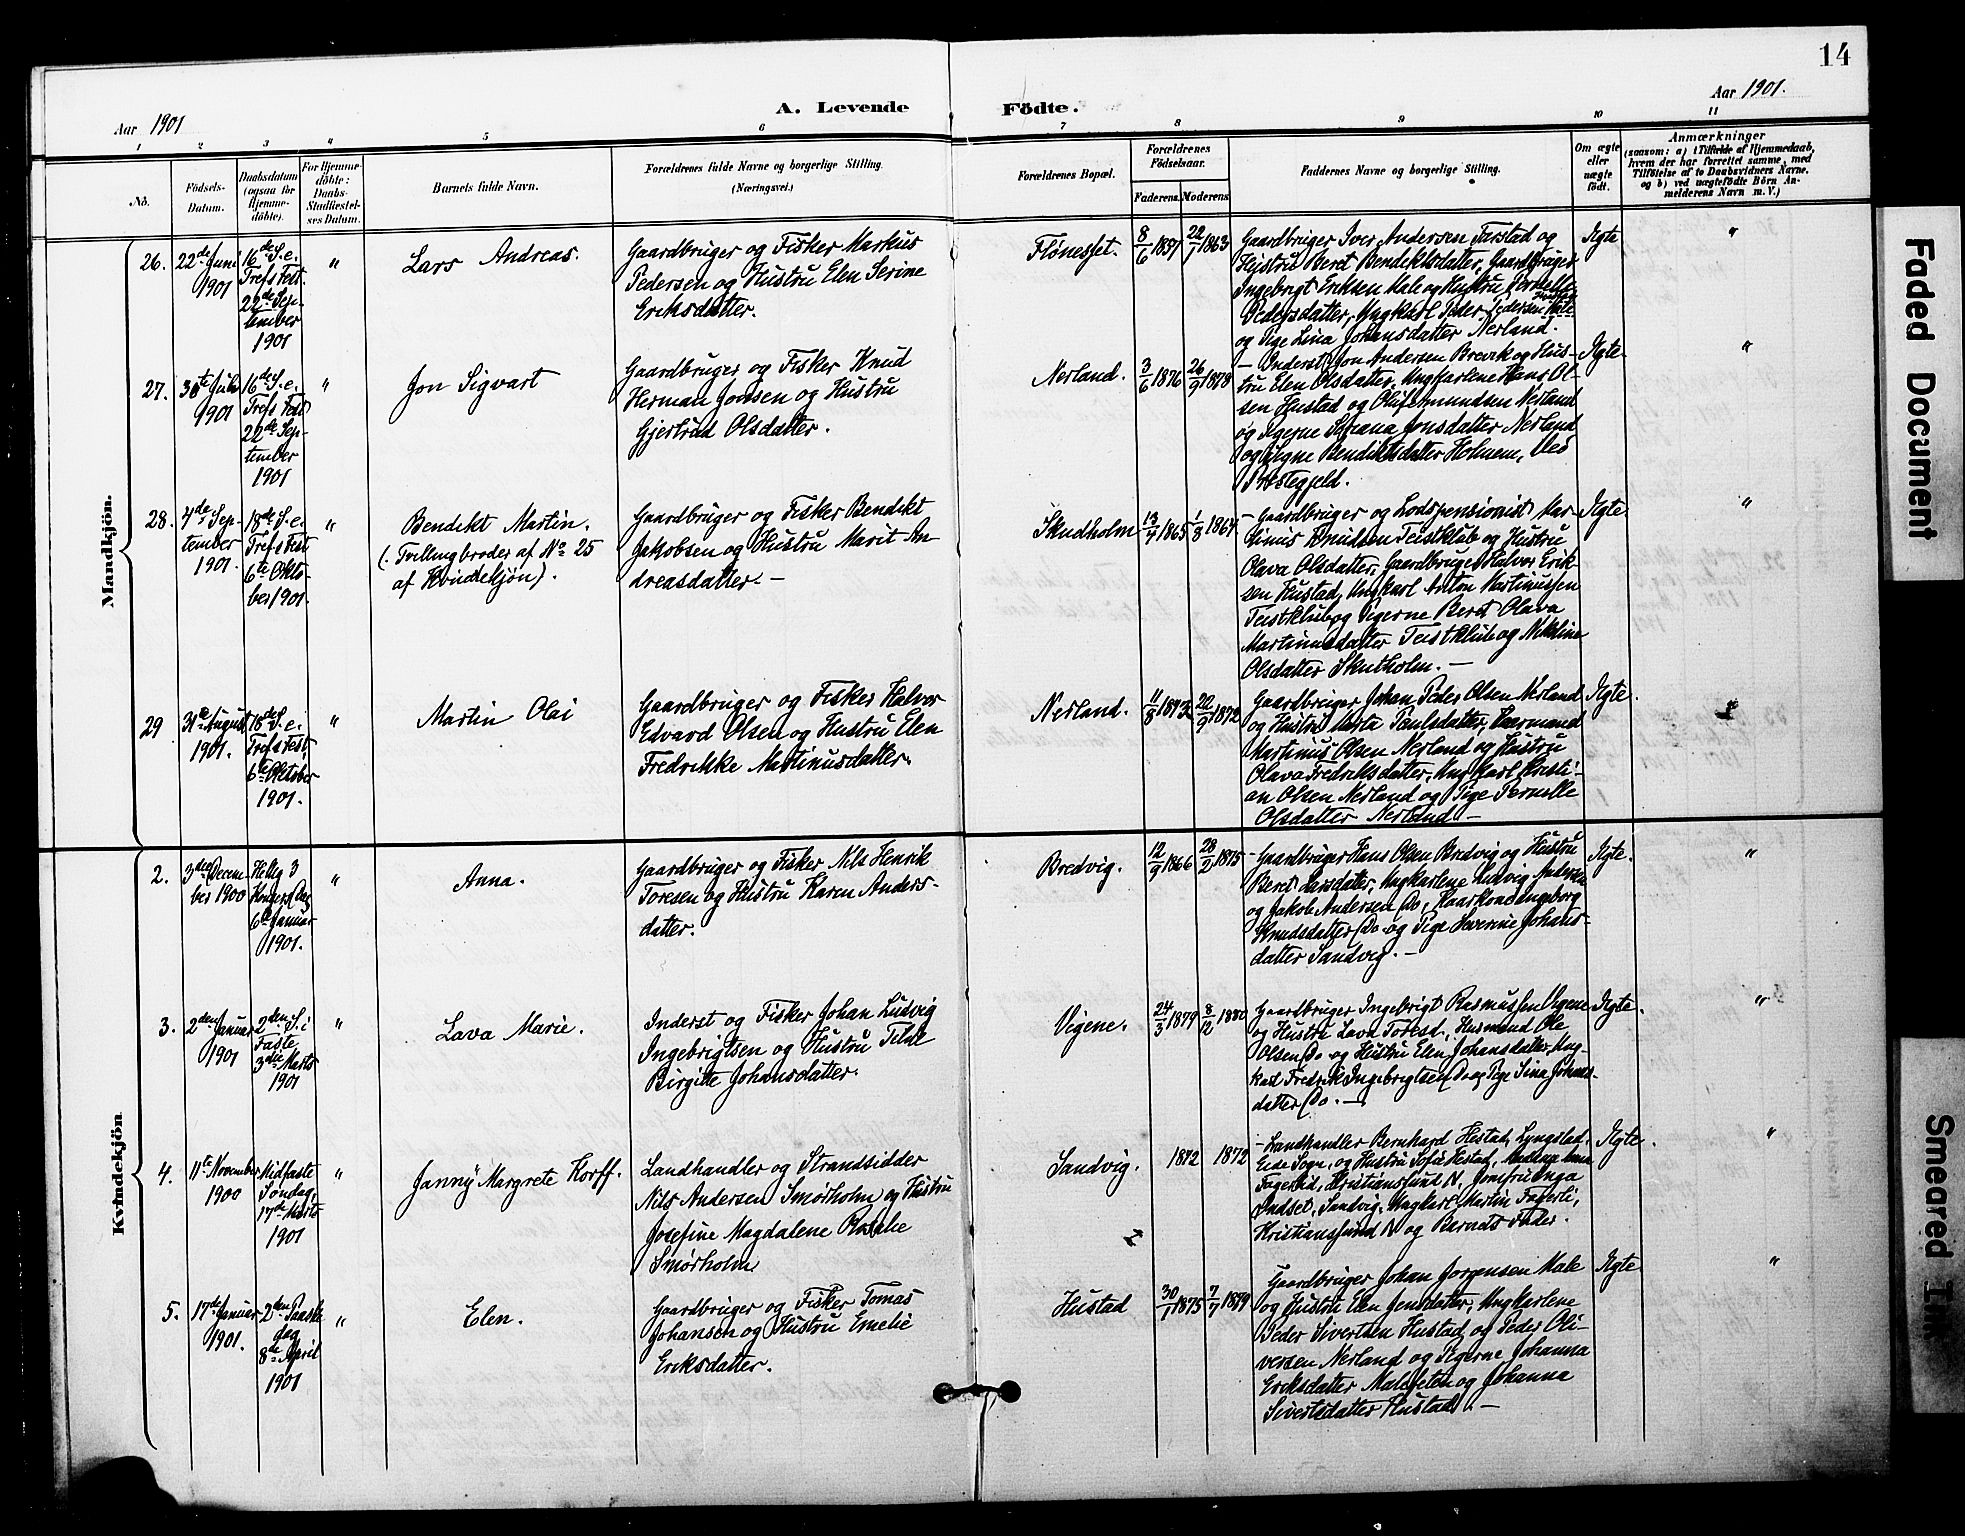 14
Aar 1901
A. Levende Födte.
Aar 1901.
1 2 3 4 5 6 7 8 9 10 11
No.
Födsels-
Datum.
Daabsdatum
(ogsaa for
Hjemme-
döbte).
For Hjemme-
döbte:
Daabs-
Stadfæstel-
ses Datum.
Barnets fulde Navn.
Forældrenes fulde Navne og borgerlige Stilling.
(Næringsvei.)
Forældrenes Bopæl.
Forældrenes
Födselsaar.
Faderens. Moderens.
Faddernes Navne og borgerlige Stilling.
Om ægte
eller
uægte
födt.
Anmærkninger
(saasom: a) i Tilfælde af Hjemmedaab,
hvem der har forrettet samme, med
Tilföielse af to Daabsvidners Navne,
og b) ved uægtefödte Börn An-
melderens Navn m. V.)
Mandkjön.
26.
22de Juni
1901
16de S. e.
Trefs Fest.
22de Sep-
tember
1901
"
Lars Andreas.
Gaardbruger og Fisker Markus
Pedersen og Hustru Elen Serine
Eriksdatter.
Flønesset.
8/6 1857
22/7 1863
Gaardbruger Iver Andersen Farstad og
Hustru Beret Bendiktsdatter, Gaardbruger
Ingebrigt Eriksen Male og Hustru Pernille
Pedersdatter, Ungkarl Peder Pedersen
og Pige Lina Johansdatter Nerland.
Ægte
"
27.
30te Juli
1901
16de S. e.
Trefs Fest
22de Sep-
tember
1901
"
Jon Sigvart
Gaardbruger og Fisker Knud
Herman Jonsen og Hustru
Gjertrud Olsdatter.
Nerland.
3/6 1876
26/9 1878
- Inderst Jon Andersen Brevik og Hus-
tru Elen Olsdatter, Ungkarlene Hans Ol-
sen Hustad og Oluf Amundsen Nerland
og Pigerne Jonsdatter Nerland
og Bendiktsdatter Holmem, Veø
Prestegjeld.
Ægte
"
28.
7de Sep-
tember
1901.
18de S. e.
Trefs Fest
6te Okto-
ber 1901.
"
Bendikt Martin.
(. Tvillingbroder af No 25
af Kvindekjön).
Gaardbruger og Fisker Bendikt
Jakobsen og Hustru Marit An-
dreasdatter. -
Skudholm
13/4 1865
1/8 1864
- Gaardbruger og Lodspensionist Mar-
tinus Knudsen Teistklub og Hustru
Olava Olsdatter, Gaardbruger Halvor Erik-
sen Hustad, Ungkarl Anton Martinussen
Teistklub og Pigerne Beret Olava
Martinusdatter Teistklub og Nikoline
Olsdatter Skutholm. -
Ægte.
"
29
31te August
1901.
18de S. e.
Trefs Fest,
6te Oktober
1901.
"
Martin Olai
Gaardbruger og Fisker Halvor
Edvard Olsen og Hustru Elen
Fredrikke Martinusdatter.
Nerland.
11/8 1873
22/9 1872
Gaardbruger Johan Peder Olsen Nerland
og Hustru Marta Paulsdatter, Kaarmand
Martinus Olsen Nerland og Hustru
Olava Fredriksdatter, Ungkarl Kristi-
an Olsen Nerland og Pige Pernelle
Olsdatter Nerland -
Ægte.
Kvindekjön
2.
3die Decem-
ber 1900
Hellig 3
Kongers Dag
6te Januar
1901.
"
Anna.
Gaardbruger og Fisker Nils Henrik
Toresen og Hustru Karen Anders-
datter.
Bredvig.
12/9 1866
28/2 1875
- Gaardbruger Hans Olsen Bredvig og Hustru
Beret Larsdatter, Ungkarlene Ludvig Andersen
og Jakob Andersen Do, Kaarkone Ingeborg
Knudsdatter Do og Pige Severine Johans-
datter Sandvig. -
Ægte.
"
3.
2den Januar
1901
2den S. i
Faste
3die Marts
1901
"
Lava Marie.
Inderst og Fisker Johan Ludvig
Ingebrigtsen og Hustru Telde
Birgitte Johansdatter.
Vigene.
24/3 1879
8/12 1880
Gaardbruger Ingebrigt Rasmussen Vigene
og Hustru Lava Toresd., Husmand Ole
Olsen Do og Hustru Elen Johansdatter, Ung-
karl Fredrik Ingebrigtsen Do og Pige Sina Johans-
datter Do. -
Ægte.
"
4.
11te November
1900
Midfaste
Søndag,
17de Marts
1901
"
Janny Margrete Korff.
Landhandler og Strandsidder
Nils Andersen Smørholm og Hustru
Josefine Magdalene
Smørholm
Sandvig.
1872
1872
- Landhandler Bernhard Hestad, Lyngstad,
Eide Sogn, og Hustru Sofie Hestad,
Fagerlid, Kristiansund N, Jomfru Inga
Indset, Sandvig, Ungkarl Martin Fagerli,
Kristiansund N og Barnets Fader.
Ægte.
"
5.
17de Januar
1901.
2den Paaske
dag
8de April
1901
"
Elen.
Gaardbruger og Fisker Tomas
Johansen og Hustru Emelie
Eriksdatter.
Hustad
30/1 1875
7/7 1879
Gaardbruger Johan Jørgensen Male
og Hustru Elen Jensdatter, Ungkarlene
Peder Sivertsen Hustad, og Peder Oli-
versen Nerland og Pigerne Johanna
Eriksdatter Malefeten og Johanna
Sivertsdatter Hustad. -
Ægte
"
Faded Document
Smeared Ink